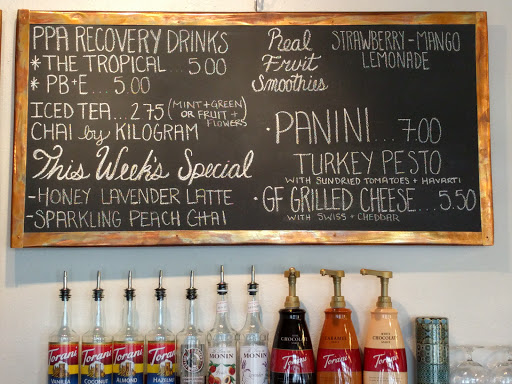 PPA RECOVERY DRINKS
* THE TROPICAL... 5.00
* PB+E... 5.00
ICED TEA... 2.75 (MINT + GREEN) OR FRUIT + FLOWERS
CHAI by KILOGRAM
This Week's Special
- HONEY LAVENDER LATTE
- SPARKLING PEACH CHAI
Real
Fruit
Smoothies
STRAWBERRY - MANGO
LEMONADE
· PANINI... 7.00
TURKEY PESTO
WITH SUNDRIED TOMATOES + HAVARTI
· GF GRILLED CHEESE... 5.50
WITH SWISS + CHEDDAR
Torani
VANILLA
Torani
COCONUT
Torani
ALMOND
Torani
HAZELNUT
MONIN
MONIN
CHOCOLATE
Torani
CARAMEL
Torani
WHITE
CHOCOLATE
Torani